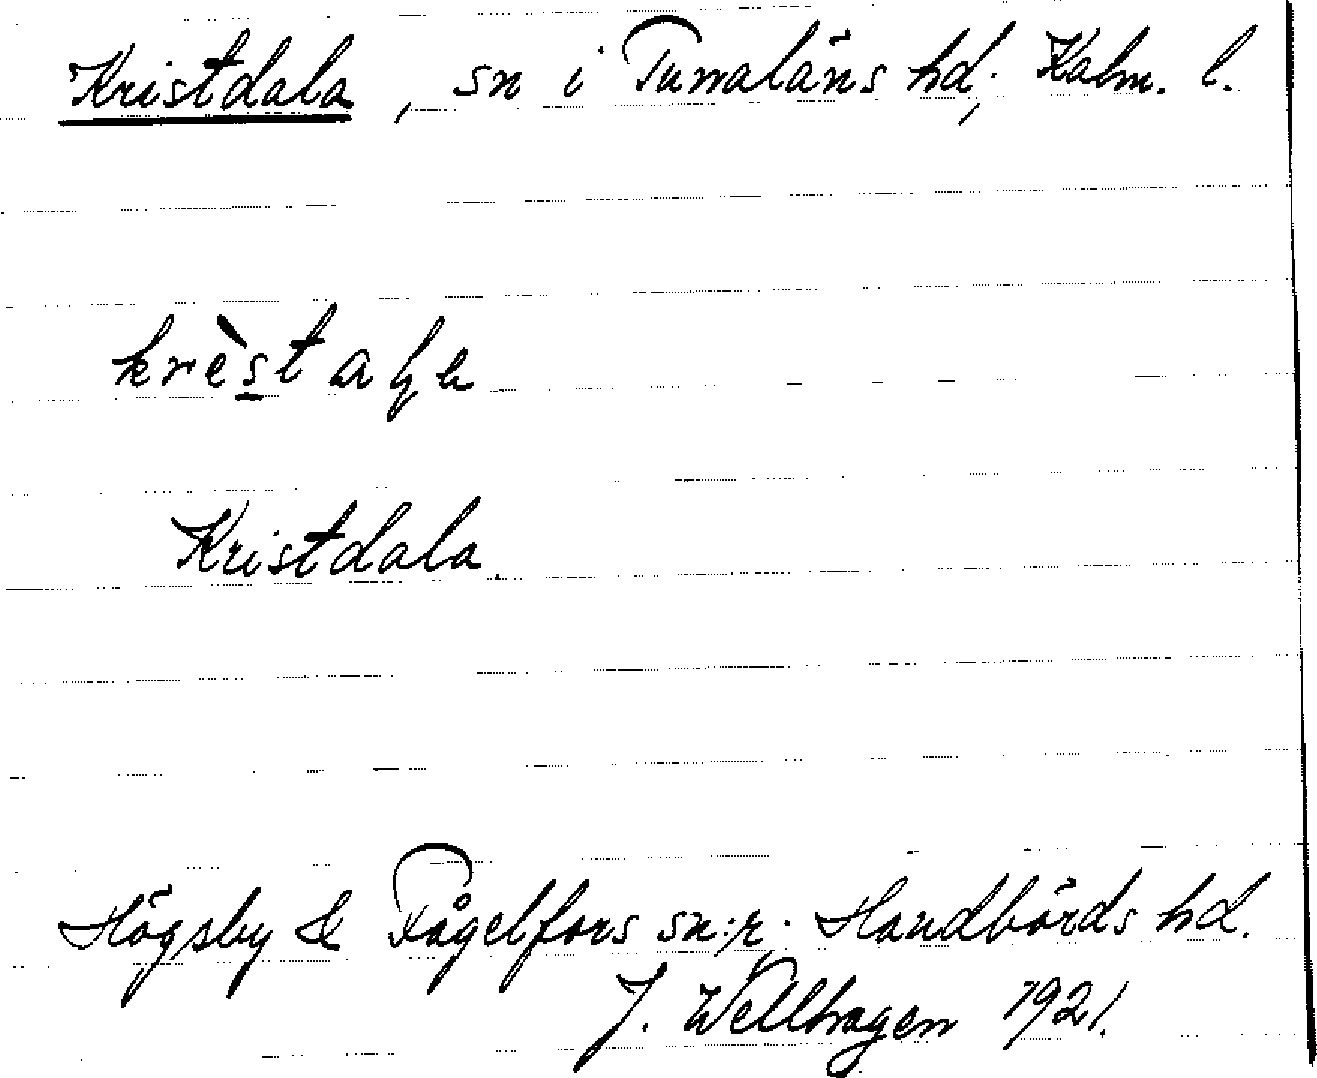 Kristdala, sn i Tunaläns hd, Kalm. l.
Kristdala
Högsby & Fågelfors sn:r. Handbörds hd.
J. Wellhagen 1921.